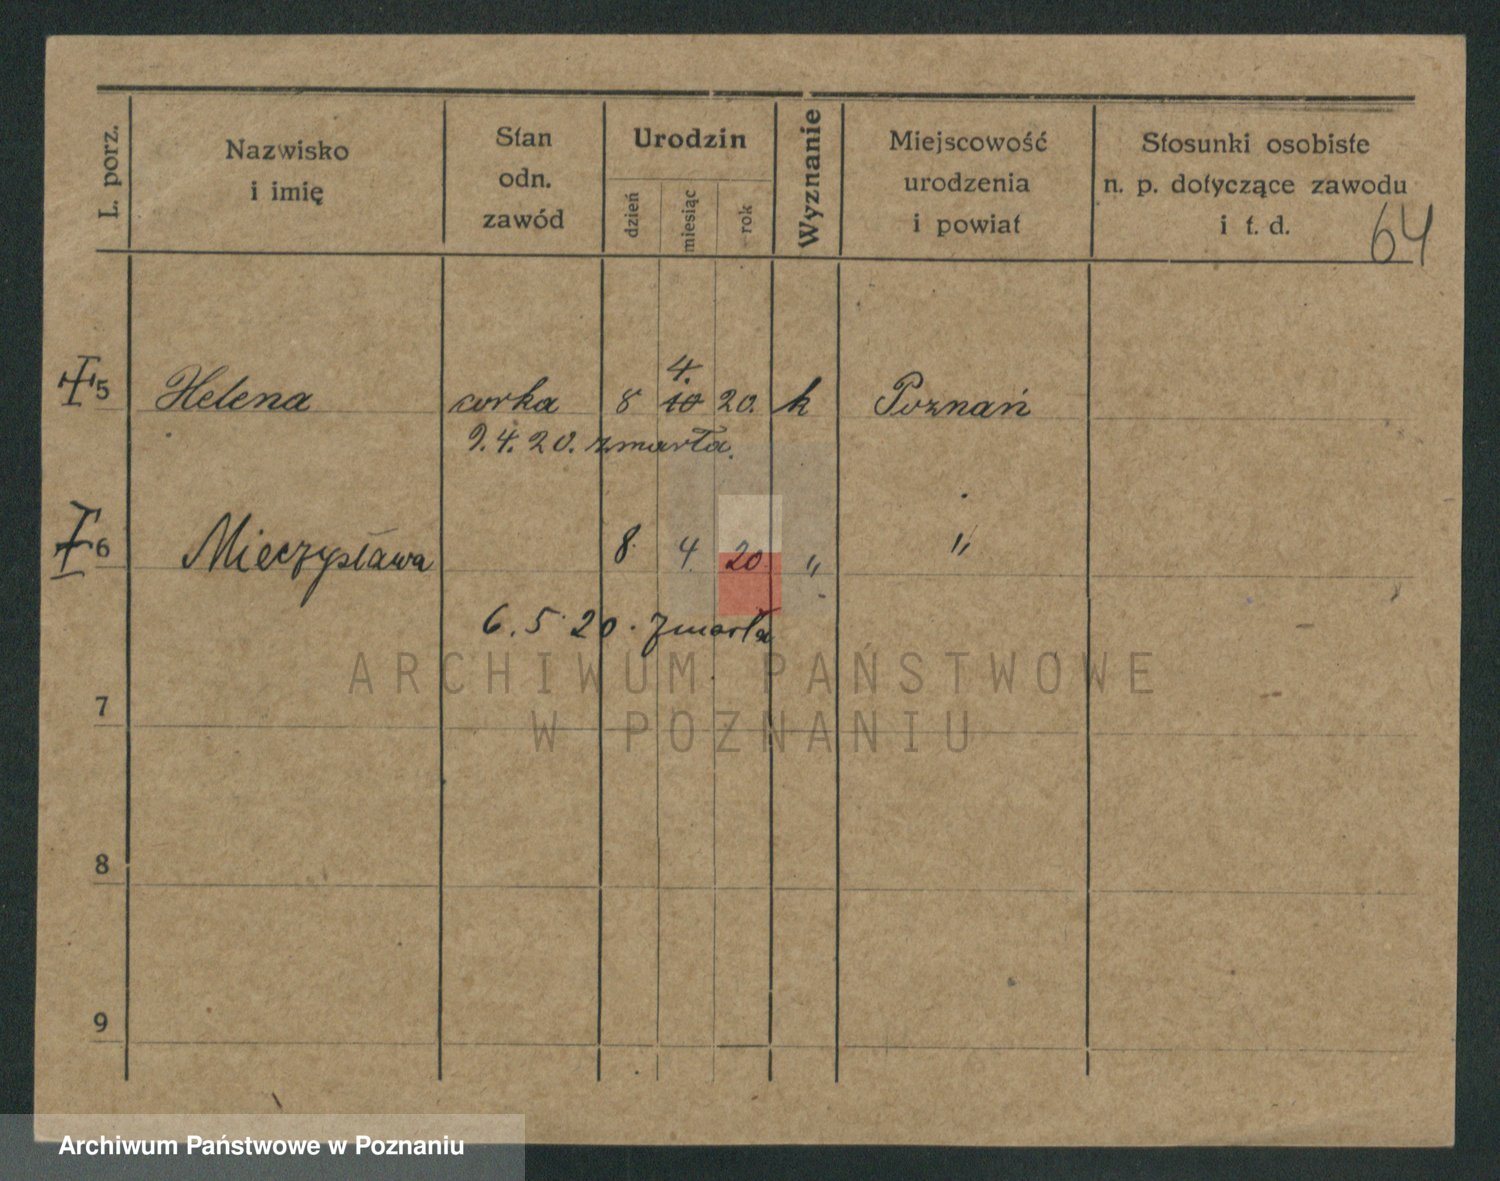 L. porz.
Nazwisko
i imię
Stan
odn.
zawód
Urodzin
dzień
miesiąc
rok
Wyznanie
Miejscowość
urodzenia
i powiat
Stosunki osobiste
n. p. dotyczące zawodu
i t. d.
64
4.
5 Helena corka 8 10 20. k Poznań
9.4.20. zmarła.
6 Mieczysława 8. 4. 20. " "
6.5.20. zmarła
ARCHIWUM PAŃSTWOWE
W POZNANIU
7
8
9
Archiwum Państwowe w Poznaniu